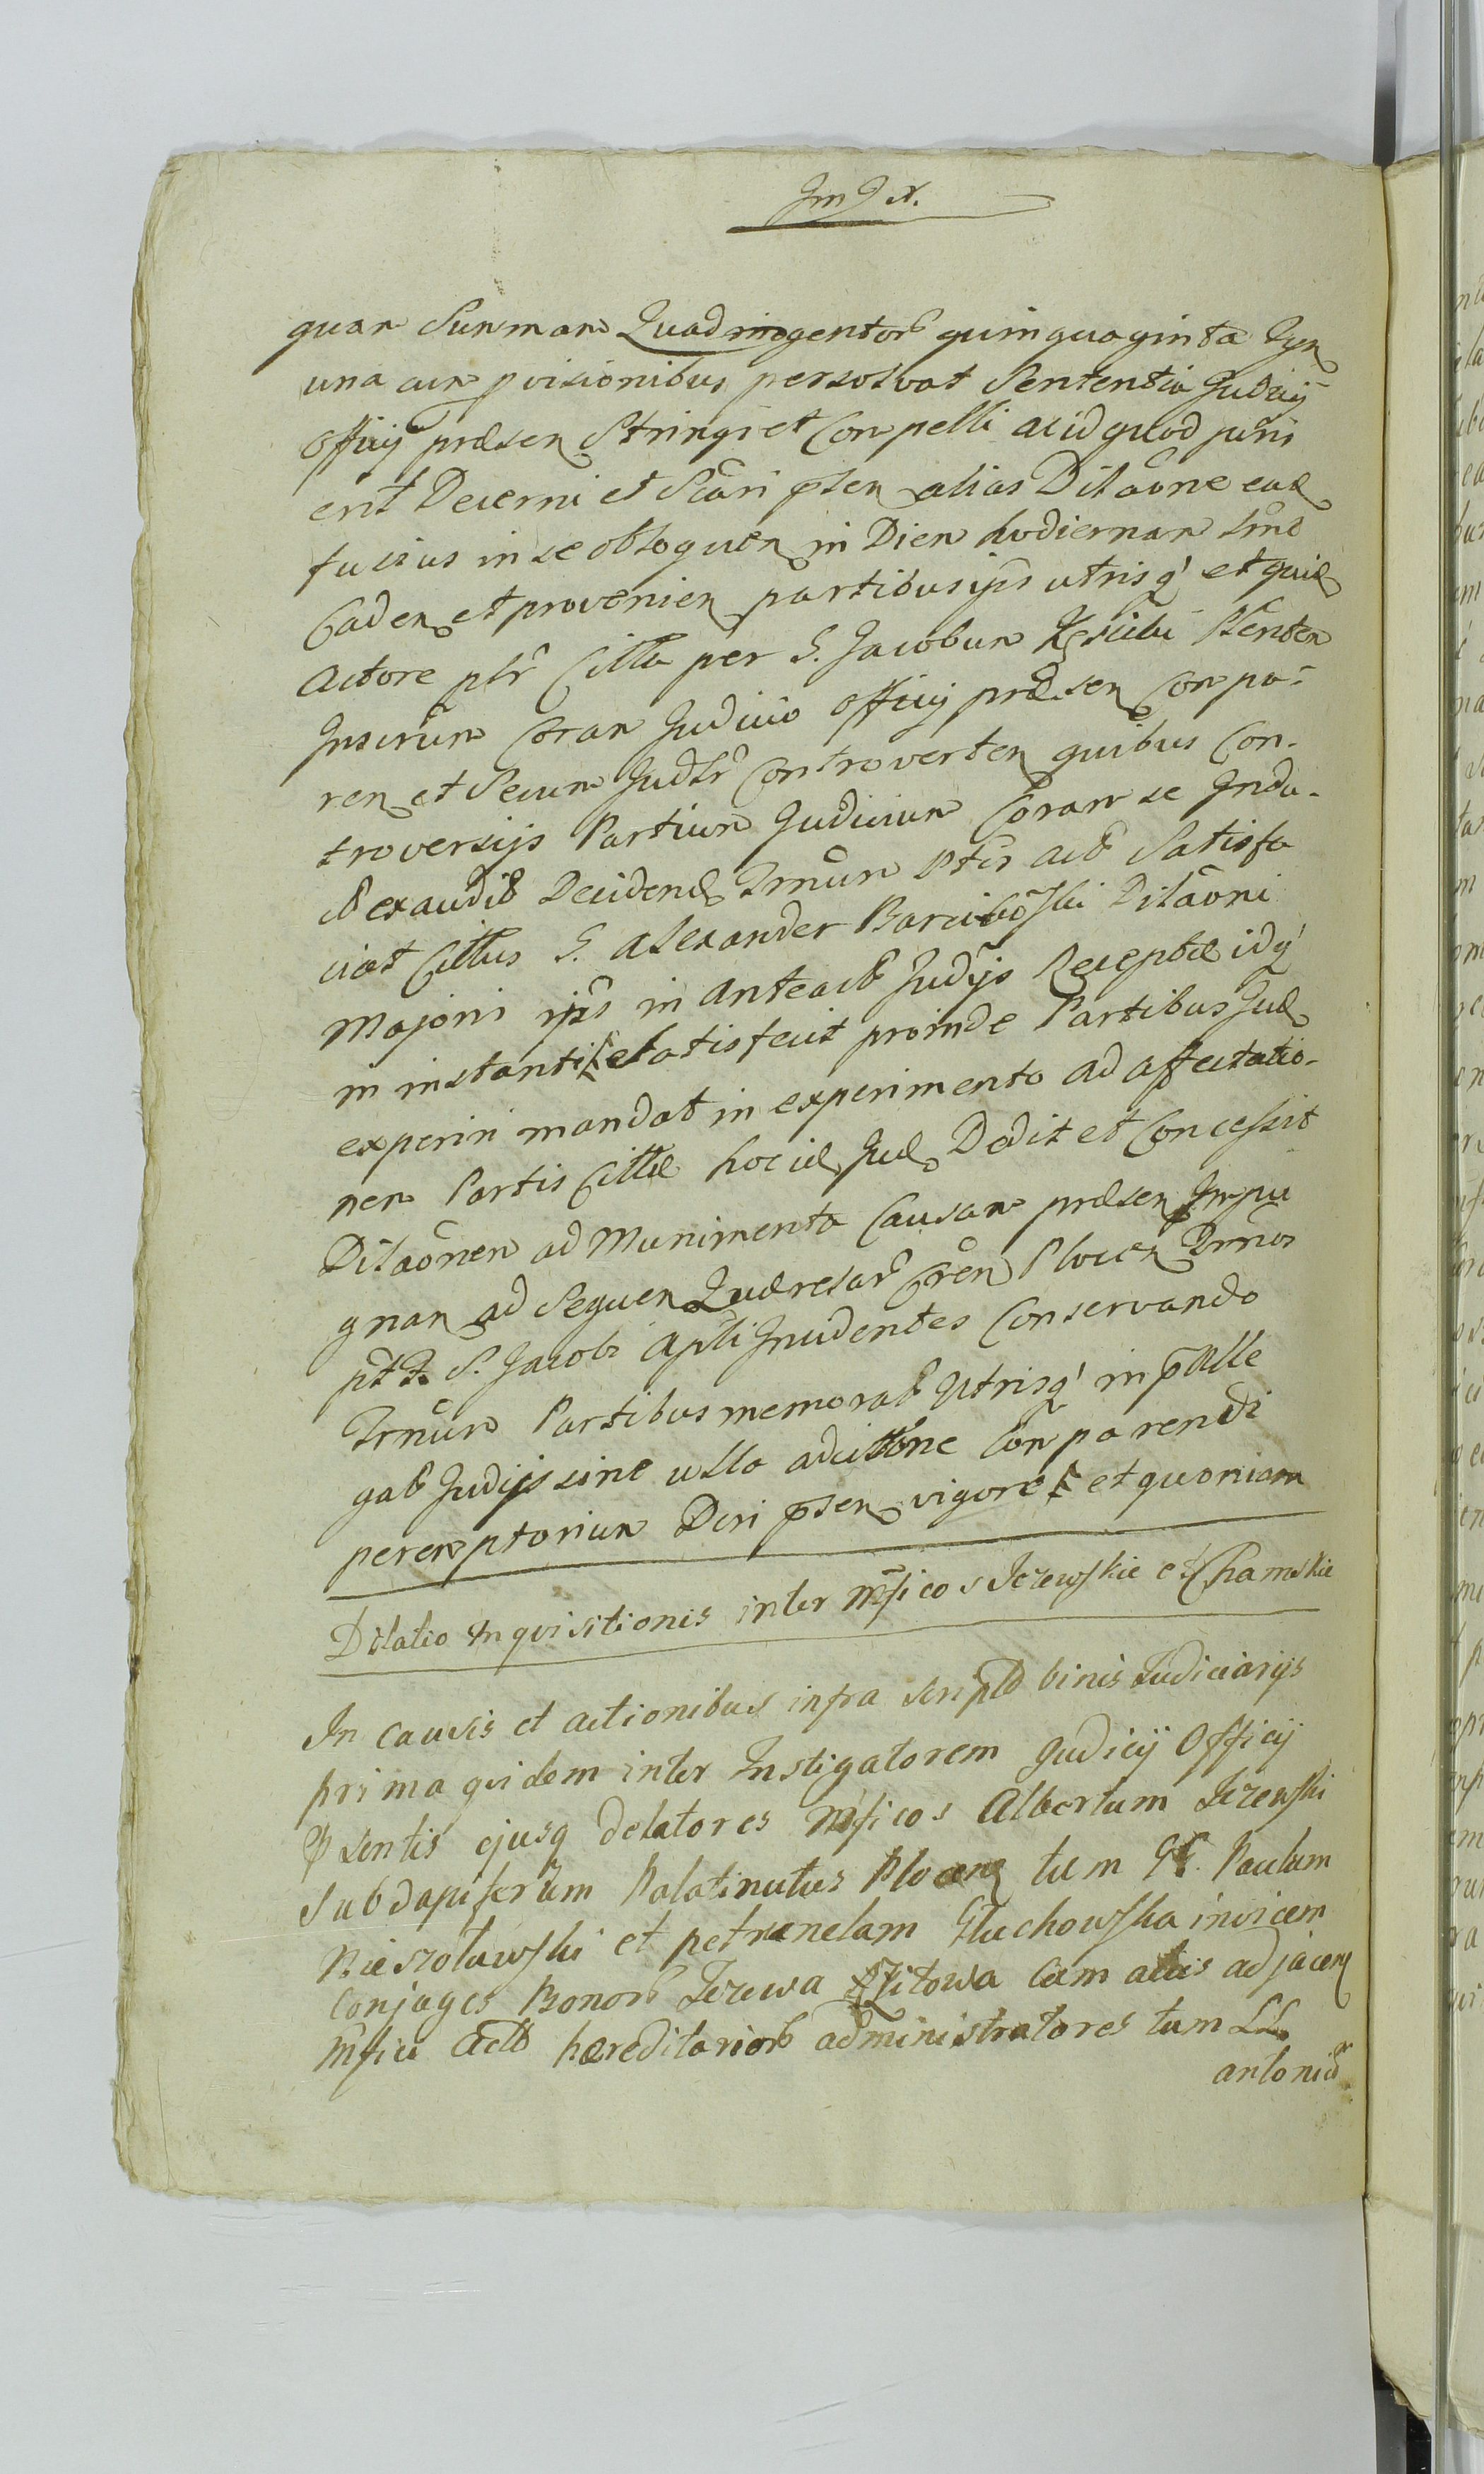 quam Summam Quadringentorb quinquaginta Tyn
una cum pvisionibus persolvat Sententia Judicij
Officij præsen Stringi et Compelli ac id quod juris
erit Decerni et Sciãri psen alias Dilãone ead
fusius in se obloquen in Diem hodiernam
Caden et provenien partibus ips utrisq et quid
Actore plr Citta per G. Jacobum
coram Judicio Officij præsen Compa-
ren et Secum Judlr Controverten quibus Con-
troversijs Partium Judicium Coram se Indu-
ct exaudit Decidend Trnum Ptis act Satisfa
ciat Cittus G. Alexander Dilãoni
Majori ips in anteact Judijs Receptæ idq
in instanti Satisfecit proinde Partibus Jud
experiri mandat in experimento ad affectatio-
nem Partis Cittæ hoc id Jud Dedit et Concessit
Dilãonem ad Munimenta Causam præsen Impu
gnan ad Sequen Querelar Plocen Trmos
ptt S. Jacobi Apli Incidentes Conservando
Trnum Partibus memorat Utrisq in
gat Judijs sine ulla adcittone Comparendi
peremptorium Dcri psen vigore et quoniam
Dilatio Inquisitionis inter Mficos Jezewskie et Chamskie
In causis et actionibus infra script binis Judiciarijs
prima quidem inter Instigatorem Judicij Officij
Psentis ejusq delatores Mficos Albertum Jezewski
Subdapiferum Palatinutus Plocen tum GG. Paulum
Nieszołuwski et petronelam Głuchowska invicem
Conjuges Bonorb Jezewa cum attis adjacen
Mfici Actb hæreditariorb administratores tum LL.
antoniũ